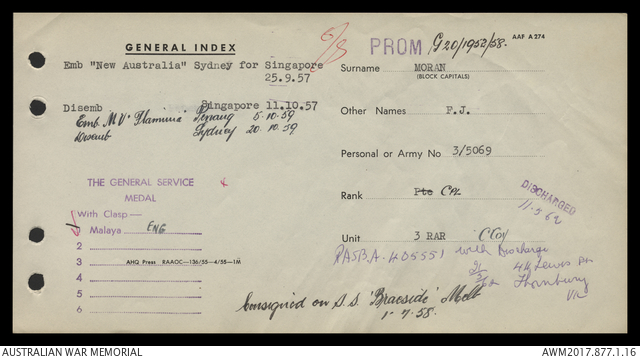 GENERAL INDEX
PROM G20/1952/58.
AAF A274
Emb "New Australia" Sydney for Singapore
25.9.57
Surname MORAN
(BLOCK CAPITALS)
Disemb Singapore 11.10.57
Emb M.V. 'Flaminia' Penang 5.10.59
Disemb Sydney 20.10.59
Other Names F.J.
Personal or Army No 3/5069
THE GENERAL SERVICE
MEDAL
With Clasp—
Malaya ENG
2
3 AHQ Press RAAOC—136/55—4/58—1M
4
5
6
Rank Pte CPL
DISCHARGED
11-5-62
Unit 3 RAR C Coy
PASBA-405551 with Discharge
21/5/62 44 Lewis
Thornbury
Vic
Consigned on S.S. 'Braeside' Melb
1-7-58.
AUSTRALIAN WAR MEMORIAL
AWM2017.877.1.16